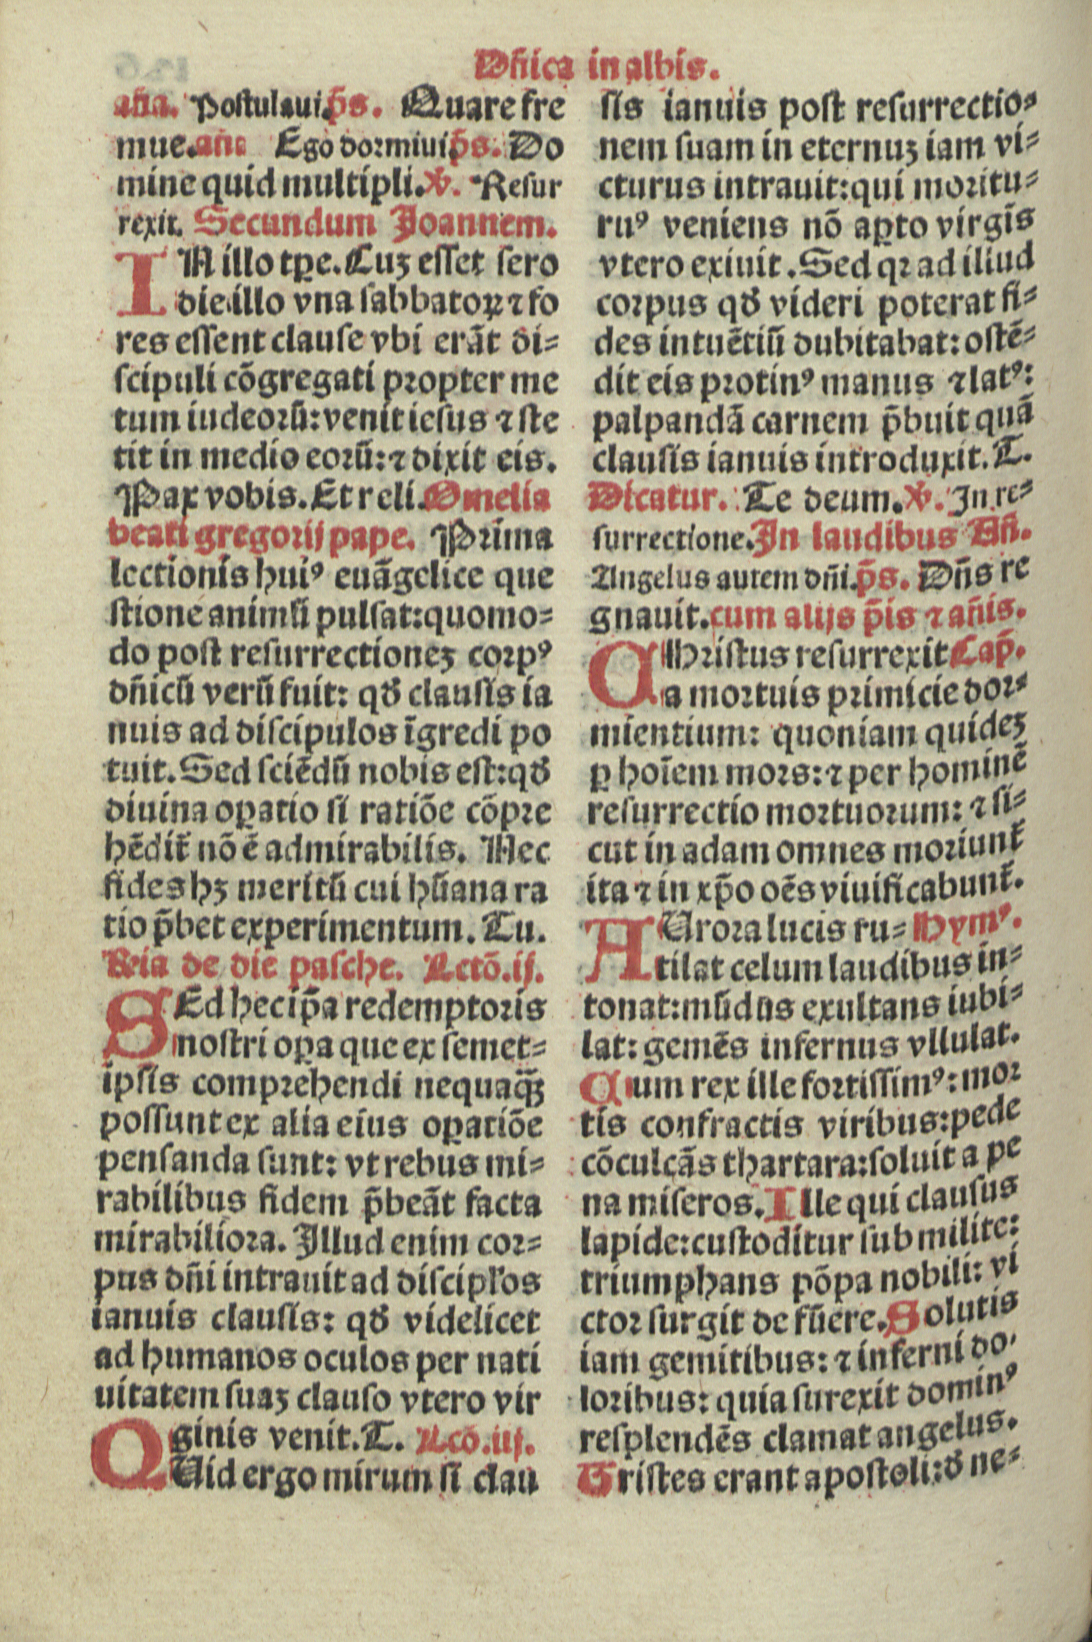 Dñica in albis.
aña. Postulaui. p̄s. Quare fre
mue. añe Ego dormiui p̄s. Do
mine quid multipli. ℣. Resur
rexit. Secundum Joannem.
IN illo tꝑe. Cuʒ esset sero
die illo vna sabbatoꝝ ⁊ fo
res essent clause vbi erāt di=
scipuli cōgregati propter me
tum iudeorū: venit iesus ⁊ ste
tit in medio eorū: ⁊ dixit eis.
Pax vobis. Et reli. Omelia
beati gregorij pape. Prīma
lectionis huiꝰ euāgelice que
stione animū pulsat: quomo=
do post resurrectioneʒ corpꝰ
dñicū verū fuit: qđ clausis ia
nuis ad discipulos īgredi po
tuit. Sed sciēdū nobis est: qđ
diuina oꝑatio si ratiōe cōpre
hēdit᷑ nō ē admirabilis. Nec
fides hʒ meritū cui hūana ra
tio p̄bet experimentum. Tu.
Rr̄ia de die pasche. Lctō. ij.
SEd hec ip̄a redemptoris
nostri oꝑa que ex semet=
ipsis comprehendi nequaq̄ʒ
possunt ex alia eius oꝑatiōe
pensanda sunt: vt rebus mi=
rabilibus fidem p̄beāt facta
mirabiliora. Illud enim cor=
pus dñi intrauit ad discipl'os
ianuis clausis: qđ videlicet
ad humanos oculos per nati
uitatem suaʒ clauso vtero vir
ginis venit. T. Lcō. iij.
QUid ergo mirum si clau
sis ianuis post resurrectio=
nem suam in eternuʒ iam vi=
cturus intrauit: qui moritu=
ruꝰ veniens nō aꝑto virgīs
vtero exiuit. Sed qꝛ ad illud
corpus qđ videri poterat fi=
des intuētiū dubitabat: ostē=
dit eis protinꝰ manus ⁊ latꝰ:
palpandā carnem p̄buit quā
clausis ianuis introduxit. T.
Dicatur. Te deum. ℣. In re=
surrectione. In laudibus Añ.
Angelus autem dñi. p̄s. Dñs re
gnauit. cum alijs p̄is ⁊ añis.
CHristus resurrexit Cap̄.
a mortuis primicie dor=
mientium: quoniam quideʒ
ꝑ hoīem mors: ⁊ per hominē
resurrectio mortuorum: ⁊ si=
cut in adam omnes moriunt᷑
ita ⁊ in xp̄o oēs viuificabunt᷑.
AUrora lucis ru= Hymꝰ.
tilat celum laudibus in=
tonat: mūdus exultans iubi=
lat: gemēs infernus vllulat.
Cum rex ille fortissimꝰ: mor
tis confractis viribus: pede
cōculcās thartara: soluit a pe
na miseros. Ille qui clausus
lapide: custoditur sub milite:
triumphans pōpa nobili: vi
ctor surgit de fūere. Solutis
iam gemitibus: ⁊ inferni do=
loribus: quia surexit dominꝰ
resplendēs clamat angelus.
Tristes erant apostoli: đ ne=